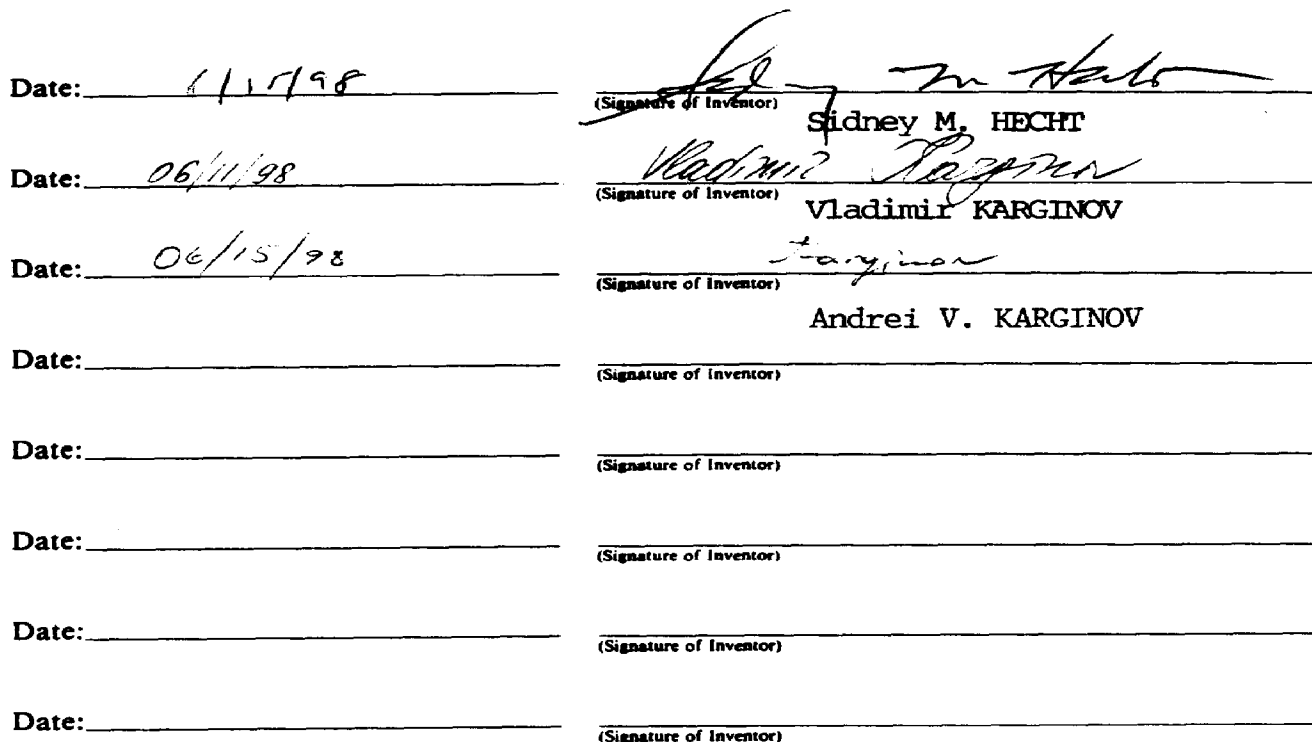 Date: 6/15/98 Sidney M Hecht
(Signature of Inventor)
Sidney M. HECHT
Date: 06/11/98 Vladimir Karginov
(Signature of Inventor)
Vladimir KARGINOV
Date: 06/15/98 Karginov
(Signature of Inventor)
Andrei V. KARGINOV
Date:
(Signature of Inventor)
Date:
(Signature of Inventor)
Date:
(Signature of Inventor)
Date:
(Signature of Inventor)
Date:
(Signature of Inventor)